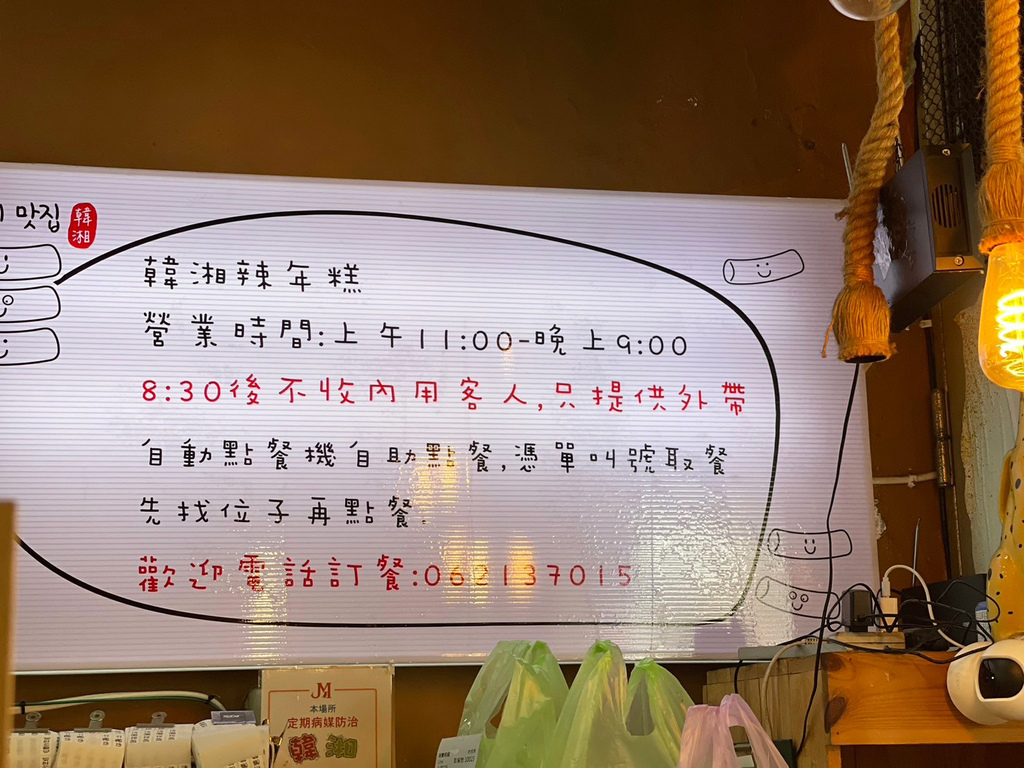 맛집
韓湘
韓湘辣年糕
營業時間:上午11:00-晚上9:00
8:30後不收內用客人,只提供外帶
自動點餐機自助點餐,憑單叫號取餐
先找位子再點餐.
歡迎電話訂餐:062137015
JM
本場所
定期病媒防治
韓湘